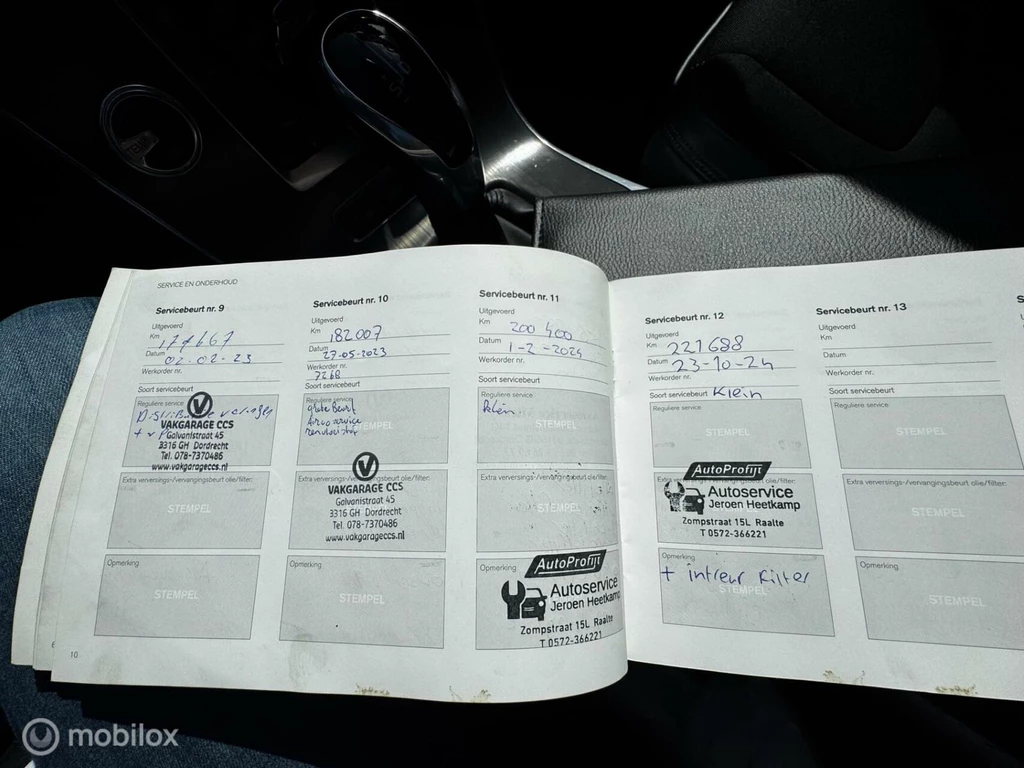 SERVICE EN ONDERHOUD
Servicebeurt nr. 9
Uitgevoerd
Km 174667
Datum 02-02-23
Werkorder nr.
Soort servicebeurt
Reguliere service
VAKGARAGE CCS
Galvanistraat 45
3316 GH Dordrecht
Tel. 078-7370486
www.vakgarageccs.nl
Extra verversings-/vervangingsbeurt olie/filter:
STEMPEL
Opmerking
STEMPEL
10
Servicebeurt nr. 10
Uitgevoerd
Km 182007
Datum 27-05-2023
Werkorder nr. 7268
Soort servicebeurt
Reguliere service
grote Beurt
Airco service
STEMPEL
Extra verversings-/vervangingsbeurt olie/filter:
VAKGARAGE CCS
Galvanistraat 45
3316 GH Dordrecht
Tel. 078-7370486
www.vakgarageccs.nl
Opmerking
STEMPEL
Servicebeurt nr. 11
Uitgevoerd
Km 200 400
Datum 1-2-2024
Werkorder nr.
Soort servicebeurt
Reguliere service
STEMPEL
Extra verversings-/vervangingsbeurt olie/filter:
STEMPEL
Opmerking
AutoProfijt
Autoservice
Jeroen Heetkamp
Zompstraat 15L Raalte
T 0572-366221
Servicebeurt nr. 12
Uitgevoerd
Km 221688
Datum 23-10-24
Werkorder nr.
Soort servicebeurt Klein
Reguliere service
STEMPEL
AutoProfijt
Autoservice
Jeroen Heetkamp
Zompstraat 15L Raalte
T 0572-366221
Opmerking
+ intreur Filter
STEMPEL
Servicebeurt nr. 13
Uitgevoerd
Km
Datum
Werkorder nr.
Soort servicebeurt
Reguliere service
STEMPEL
Extra verversings-/vervangingsbeurt olie/filter:
STEMPEL
Opmerking
STEMPEL
mobilox